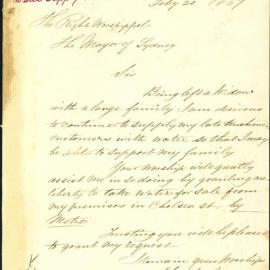 Water Supply
The Right Worshippol
The Mayor of Sydney
Sir
Being left a Widow
with a large family I am desirous
to continue to supply my late husbands
customers with water so that I may
be able to support my family
Your Worship will greatly
assist me in so doing by granting me
liberty to take water for sale from
my premises in Chelsea St by
Metre
Trusting you will be pleased
to grant my request
I Remain your Worships